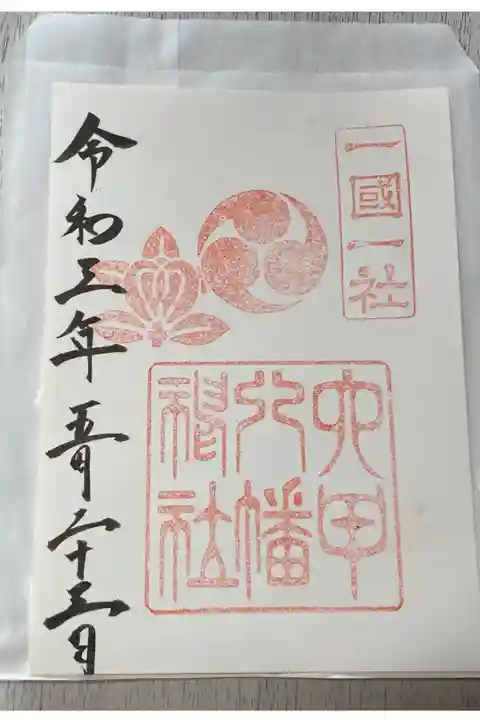 一國一社
大甲
八幡
神社
令和三年五月二十三日